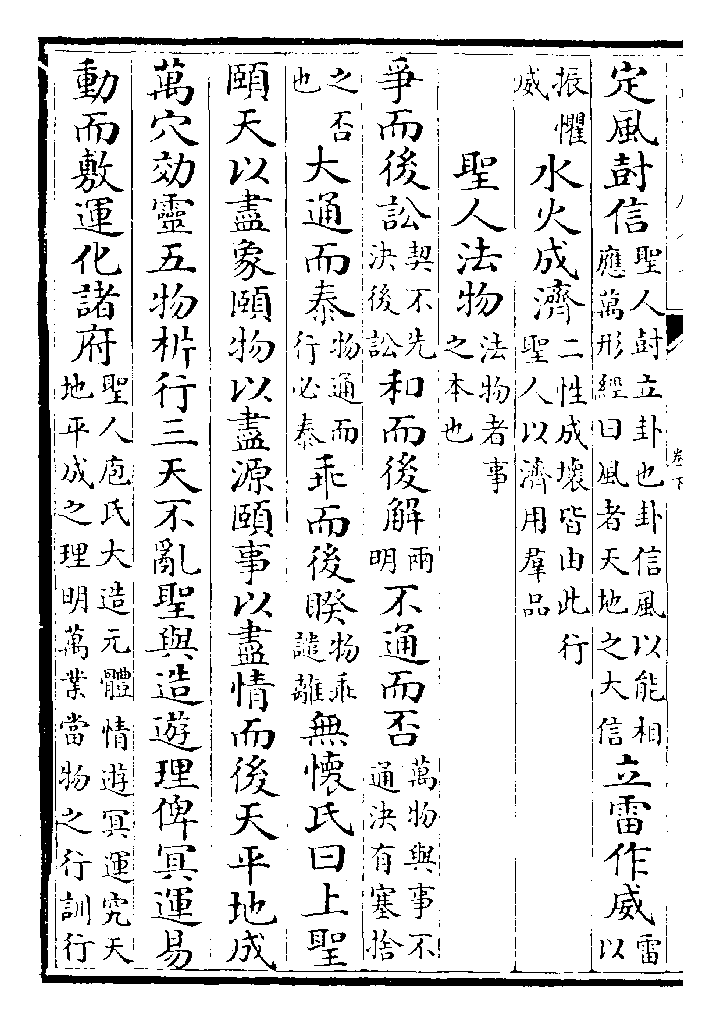 定風尌信聖人尌立卦也卦信風以能相應萬形經曰風者天地之大信立雷作威雷以
振懼威水火成濟二性成壞皆由此行聖人以濟用羣品
聖人法物法物者事之本也
爭而後訟契不先決後訟和而後解雨明不通而否萬物與事不通決有塞捨
之否也大通而泰物通而行必泰乖而後睽物乖譴離無懷氏曰上聖
頤天以盡象頤物以盡源頤事以盡情而後天平地成
萬穴効靈五物析行三天不亂聖與造遊理俾冥運易
動而敷運化諸府聖人庖氏大造元體情遊冥運究天地平成之理明萬業當物之行訓行